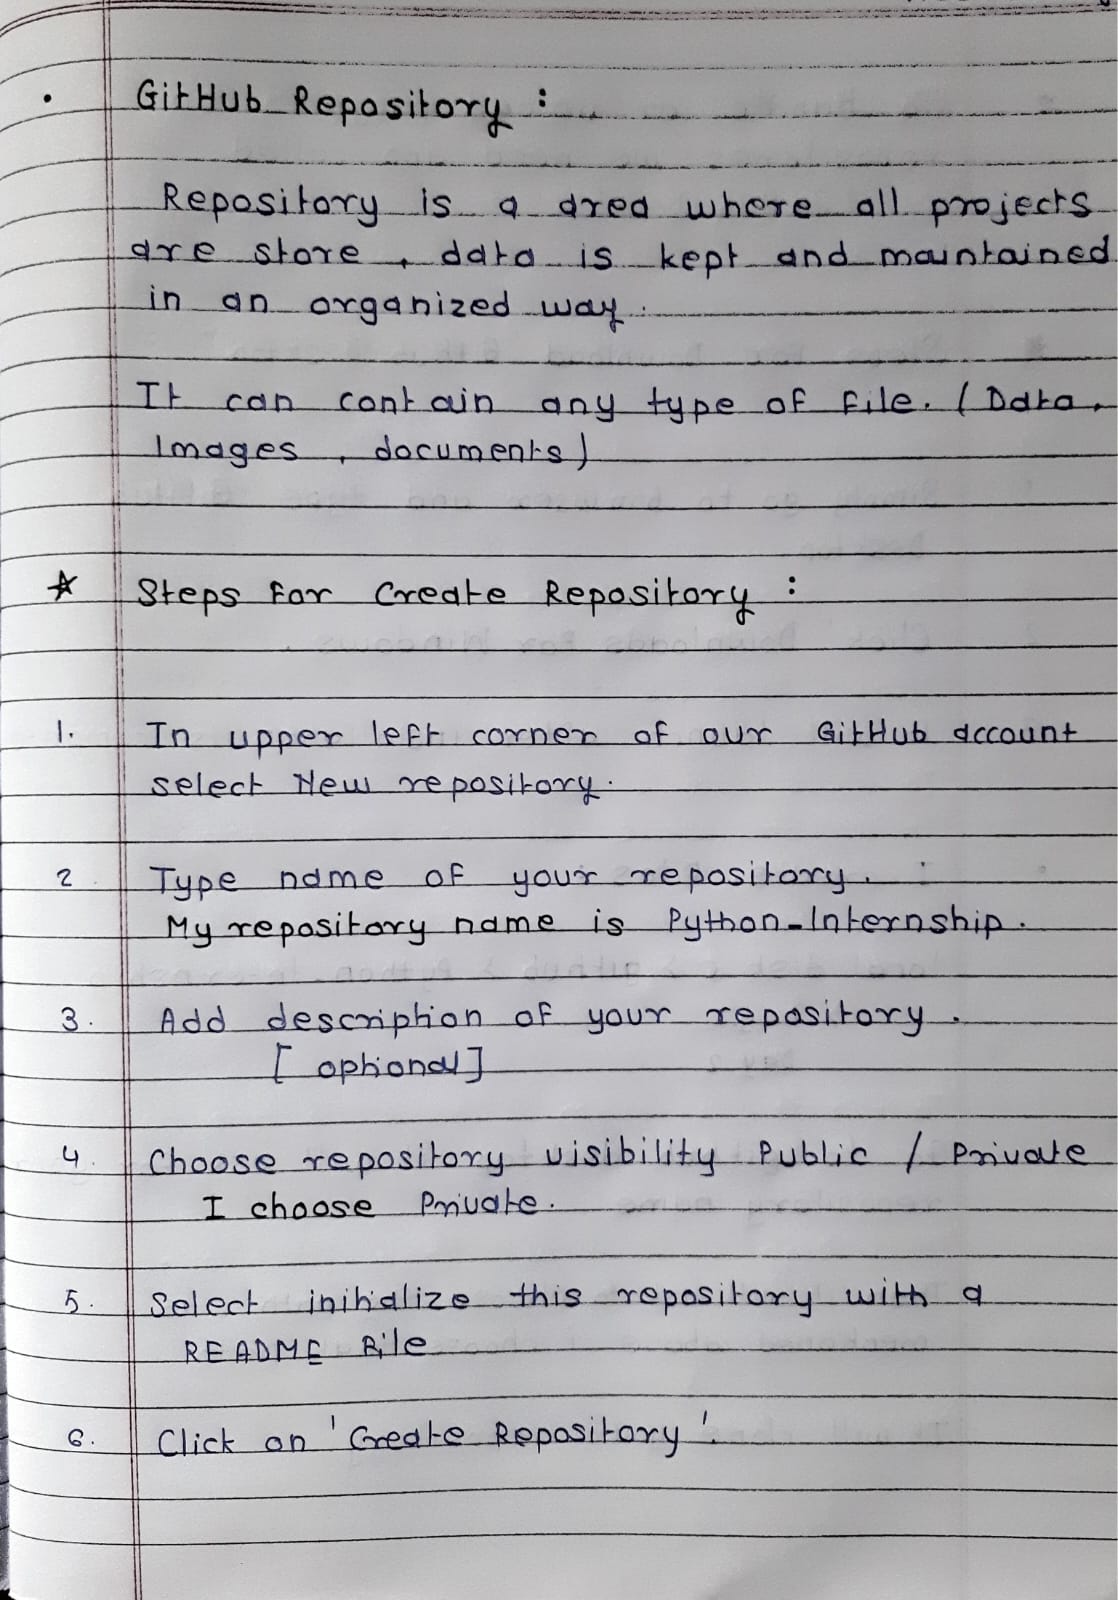 • GitHub Repository :
Repository is a area where all projects
are store , data is kept and maintained
in an organized way .
It can contain any type of file. ( Data,
Images , documents )
☆ Steps for Create Repository :
1. In upper left corner of our GitHub account
select New repository.
2. Type name of your repository.
My repository name is Python-Internship.
3. Add description of your repository.
[ optional ]
4. Choose repository visibility Public / Private
I choose Private.
5. Select initialize this repository with a
README file
6. Click on 'Create Repository'.